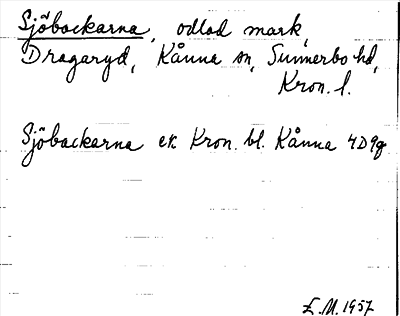 Sjöbackarna, odlad mark,
Dragaryd, Kånna sn, Sunnerbo hd,
Kron. l.
Sjöbackarna ek. Kron. bl. Kånna 4D9g
E.M. 1957